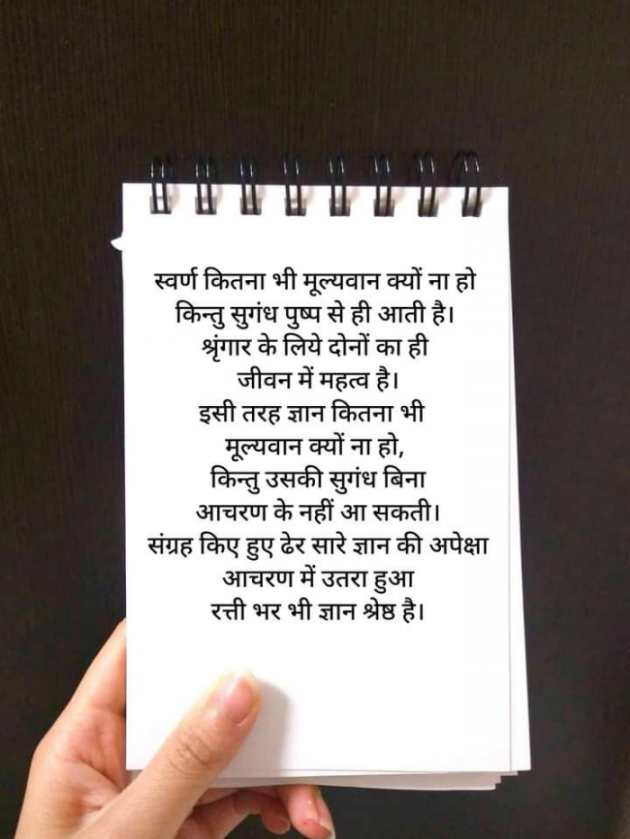 स्वर्ण कितना भी मूल्यवान क्यों ना हो
किन्तु सुगंध पुष्प से ही आती है।
श्रृंगार के लिये दोनों का ही
जीवन में महत्व है।
इसी तरह ज्ञान कितना भी
मूल्यवान क्यों ना हो,
किन्तु उसकी सुगंध बिना
आचरण के नहीं आ सकती।
संग्रह किए हुए ढेर सारे ज्ञान की अपेक्षा
आचरण में उतरा हुआ
रत्ती भर भी ज्ञान श्रेष्ठ है।